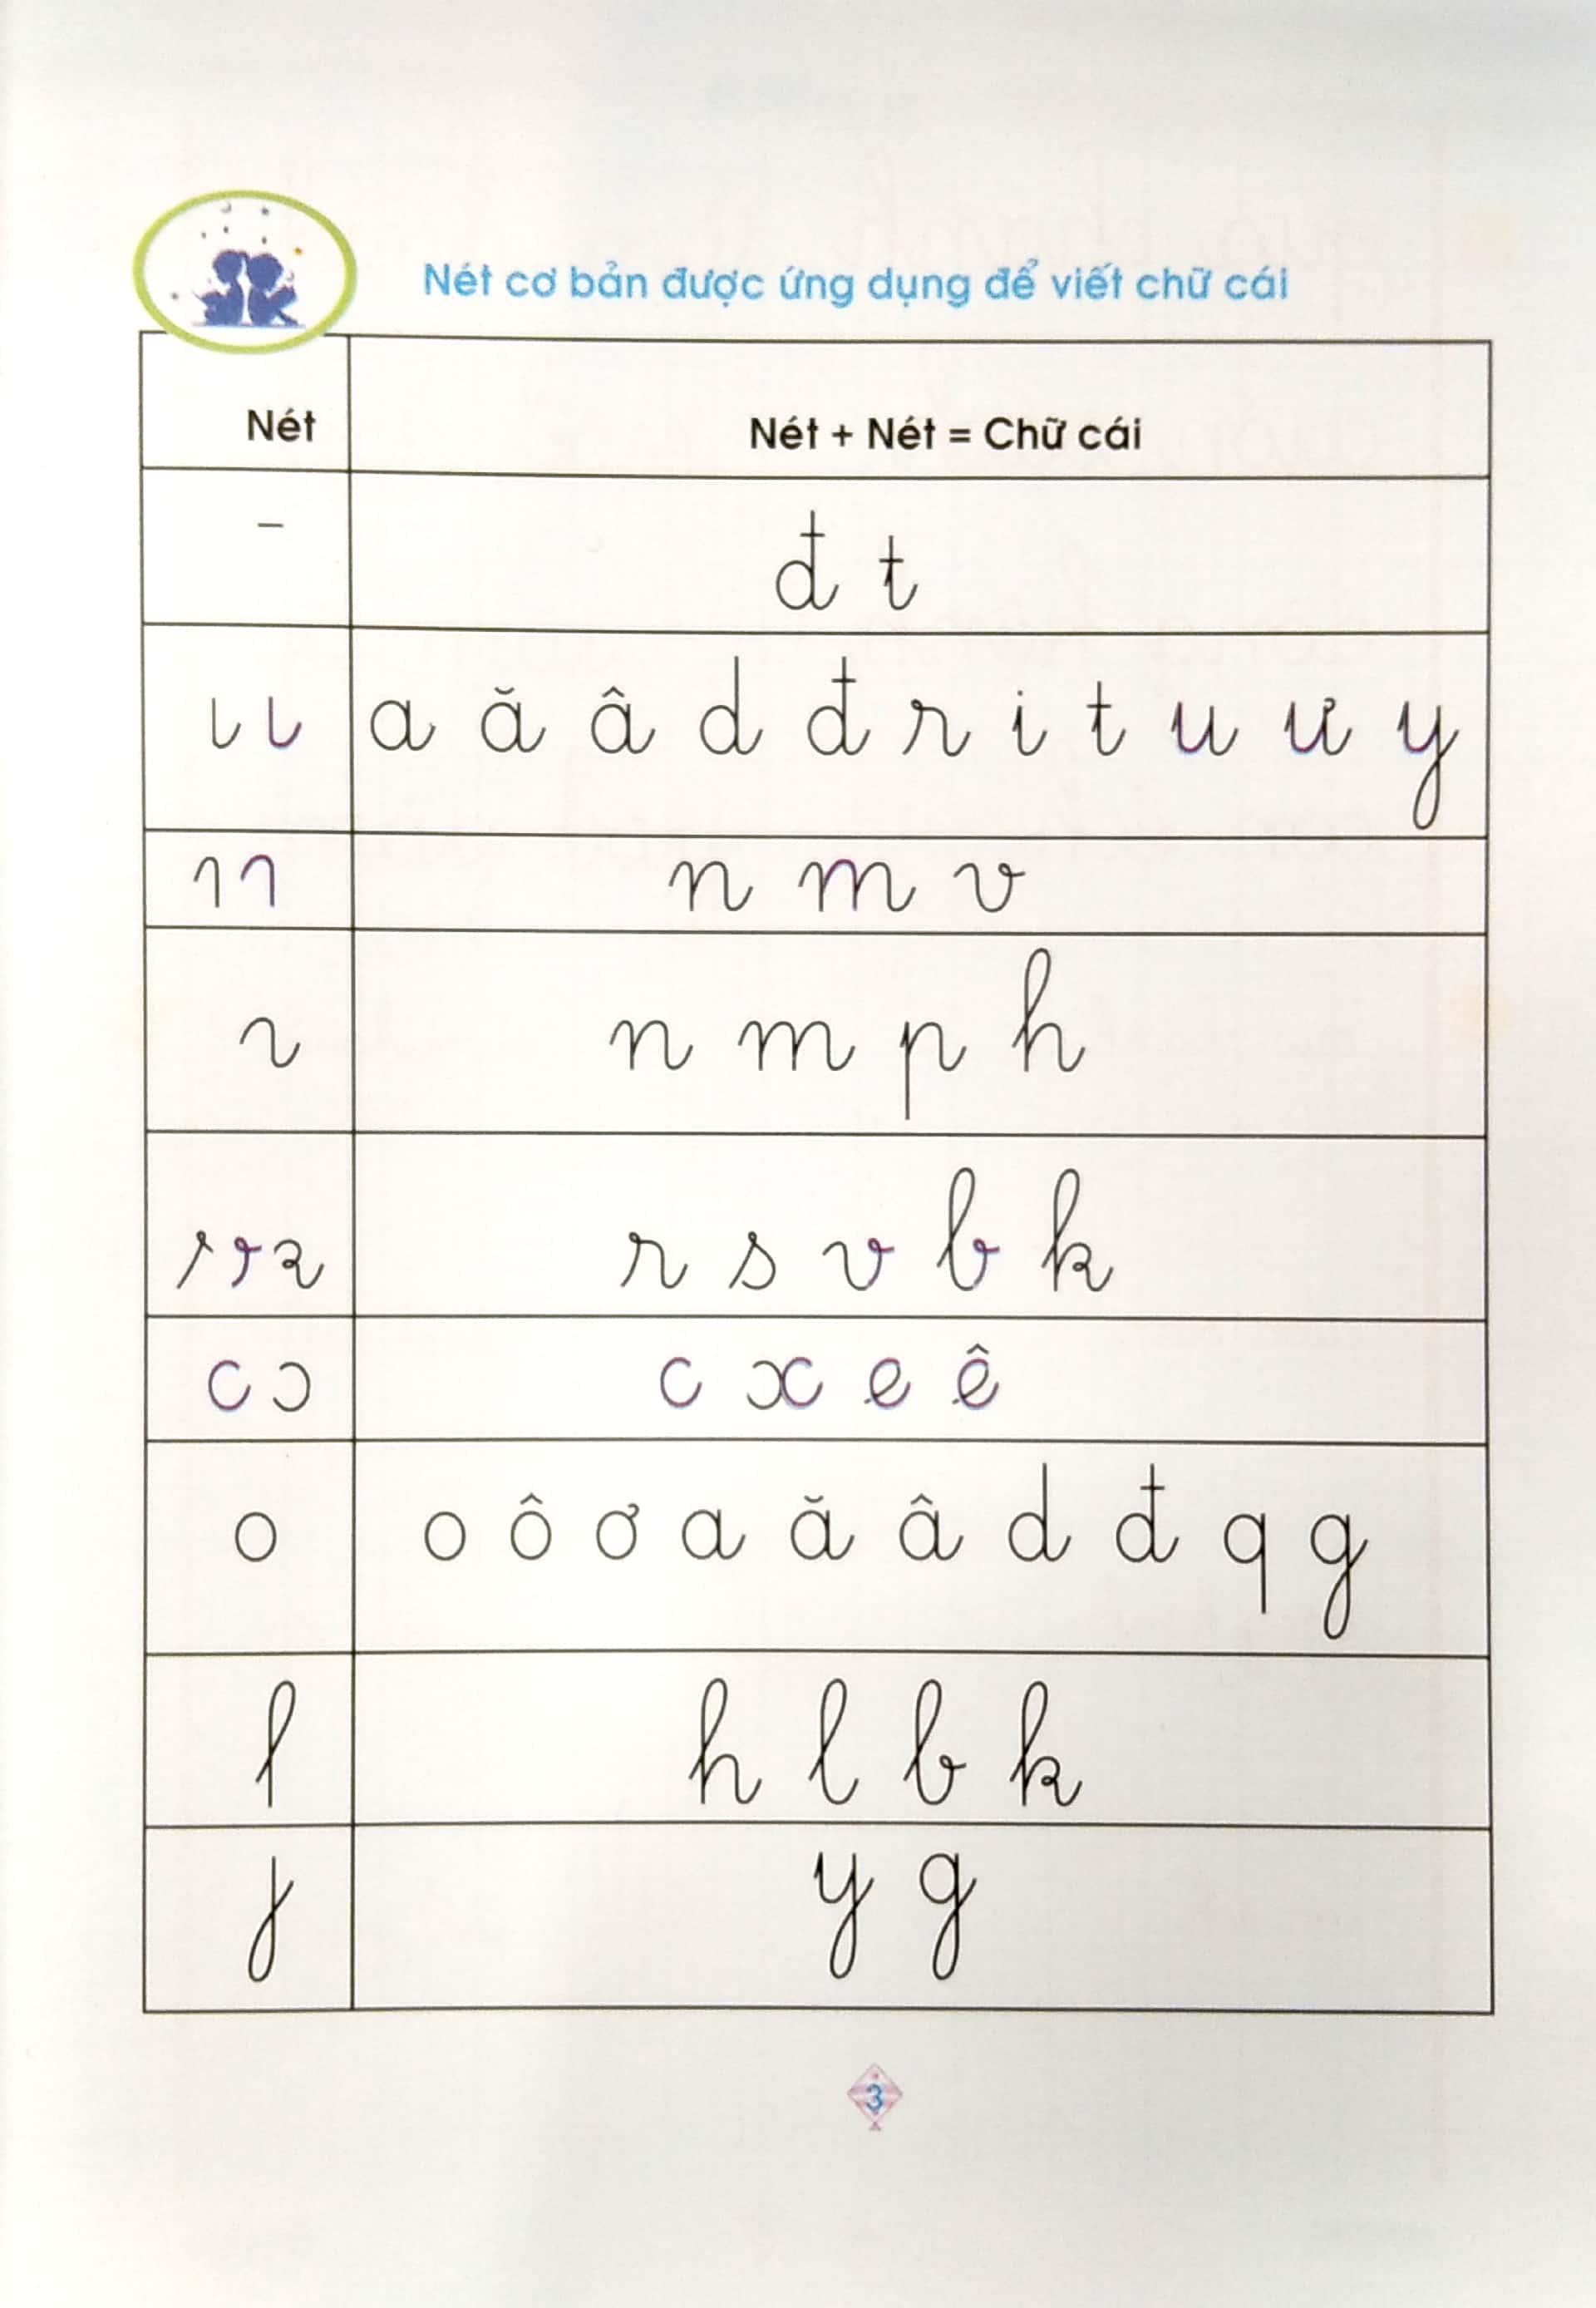 Nét cơ bản được ứng dụng để viết chữ cái
Nét Nét + Nét = Chữ cái
– đ t
a ă â d đ r i t u ư y
n m v
n m p h
r s v b k
c ɔ c x e ê
o o ô ơ a ă â d đ q g
h l b k
y g
3